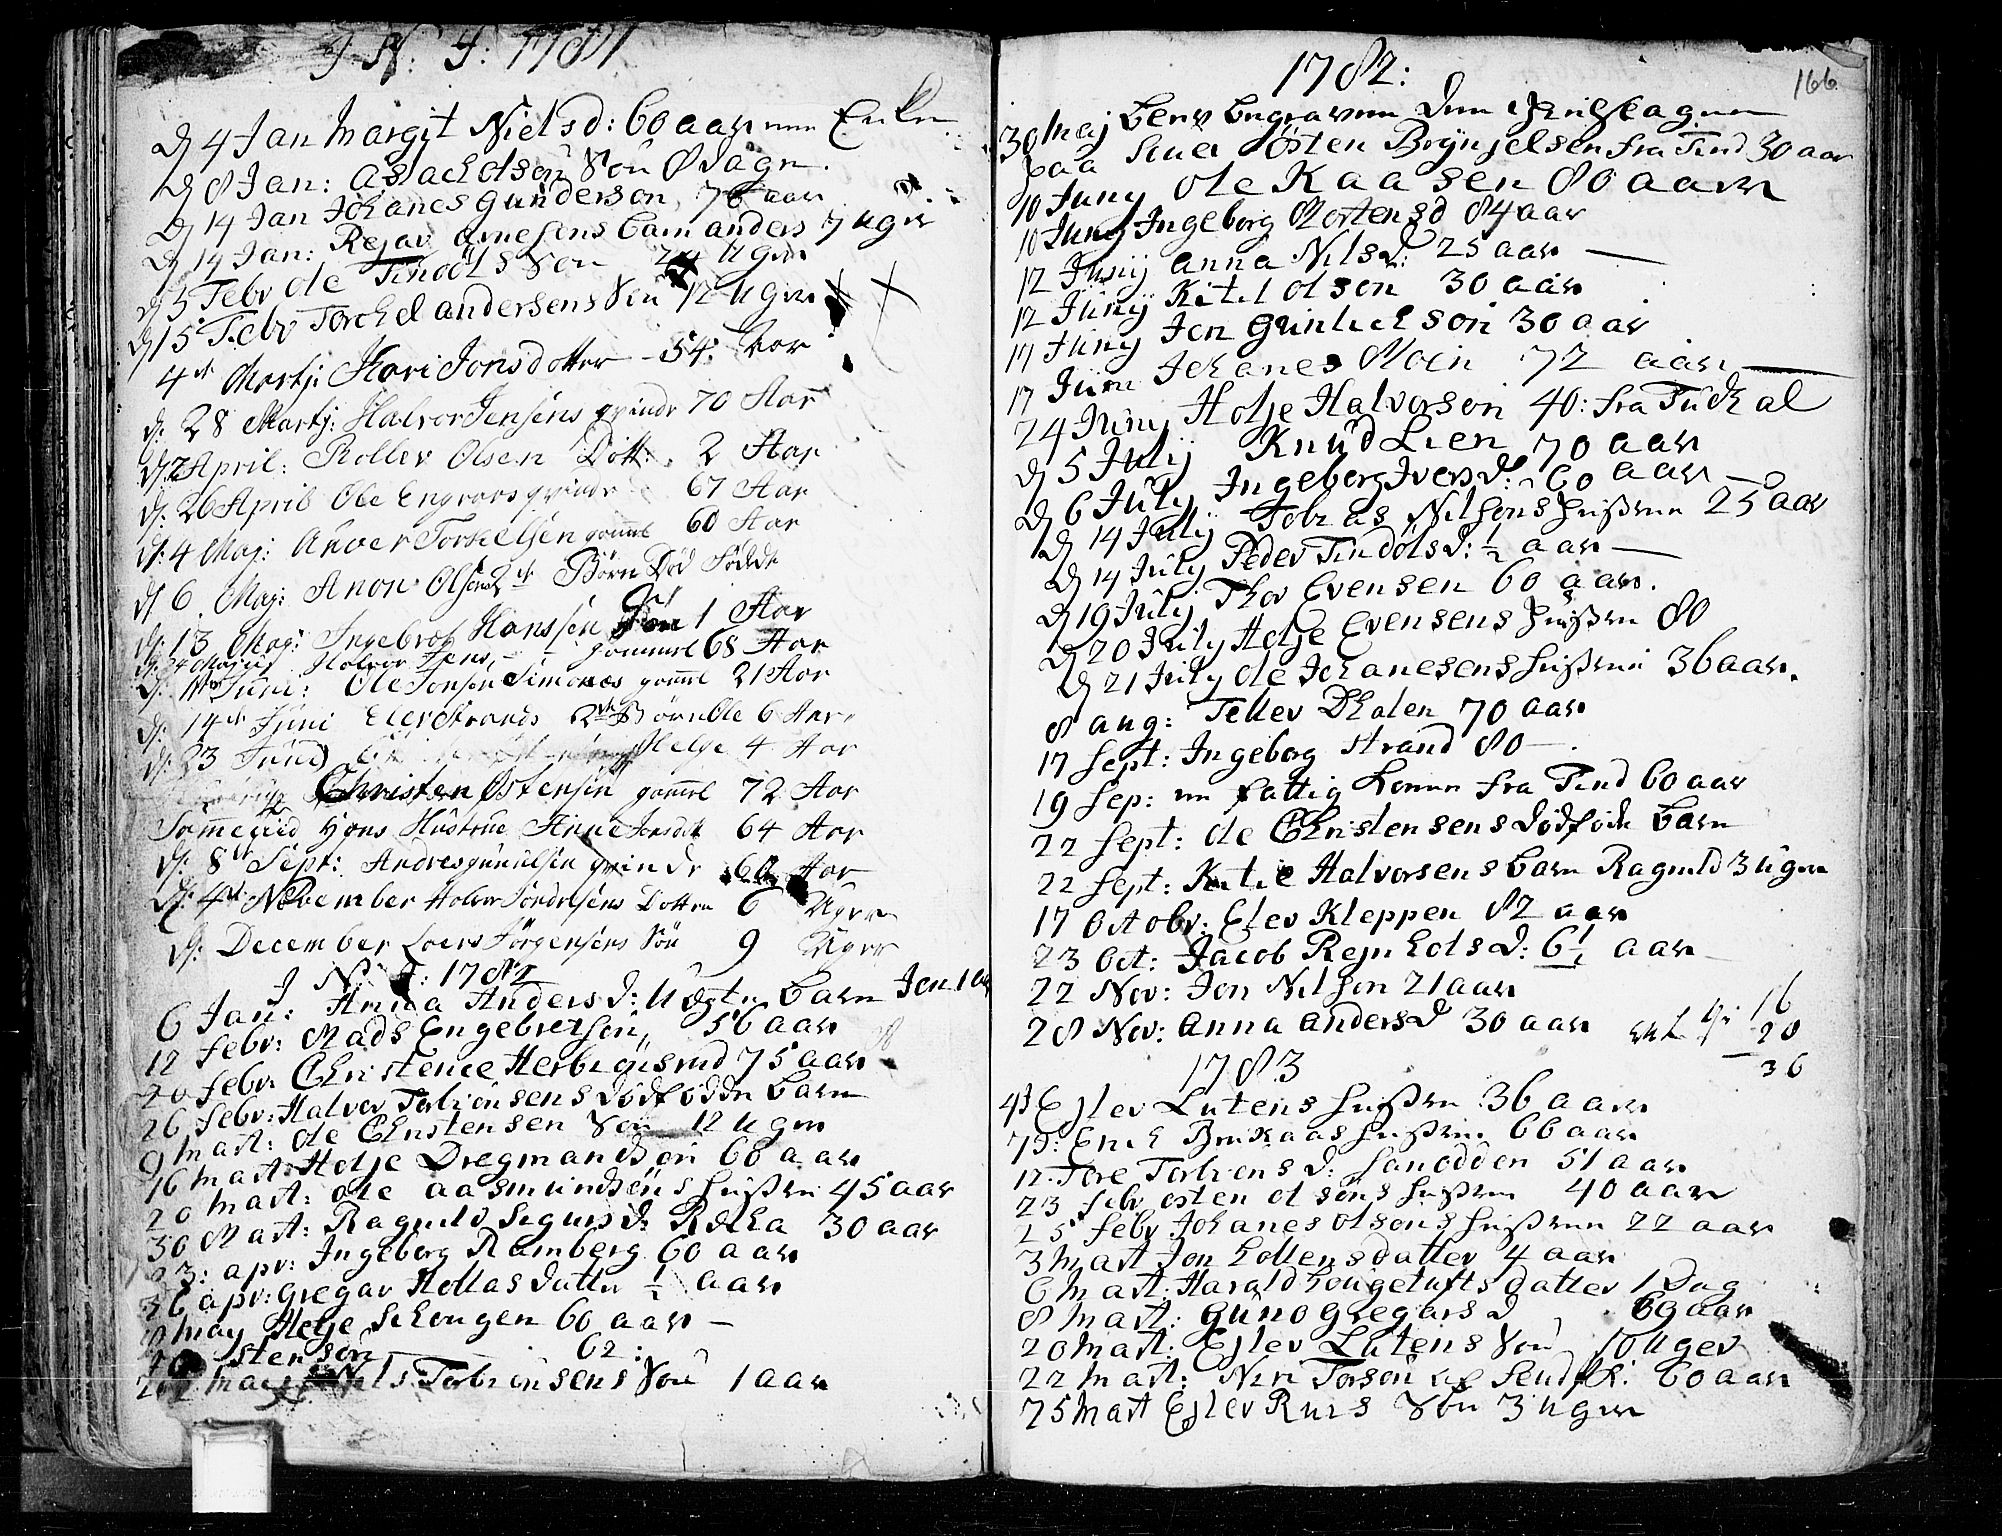 J N: J: 1781
D 4 Jan Margit Nielsd: 60 aar en Enke
D 8 Jan: Aslack Olsøn Søn 8 Dage
D 14 Jan Johanes Gunderson 76 aar
D 14 Jan: Rejar Arnesens barn anders 7 uger
D 5 Febr Ole Tindöls Søn 24 Uger
D 15 Febr Torckel andersens Søn 12 Uger
4de Martj: Kari Jonsdotter 54:
d: 28 Martj: Halvor Jensens qvinde 70 Aar
d: 2 April: Rollev Olsen Dott: 2 Aar
d: 26 April Ole Engravs qvinde 67 Aar
d: 4 Maj: Anver Torkelsen gaml 60 Aar
d 6 Maj: Anon Olsens 2de Børn Død Fødde
d: 13 Maj: Ingebret Hanssen Søn 1 Aar
d: 24 Maj Halvor Jens gammel 68 Aar
d: 11te Juni: Ole Jonsen Simonæs gaml 21 Aar
d: 14de Juni Elev Strands 2de Børn Ole 6 Aar
d: 23 Junij Helge 4 Aar
Christen Østensen gaml 72 Aar
Sammetid Hans Hustrue Anne Jonsdt 64 Aar
d: 8de Sept: Andres Gunulsen qvinde 60 Aar
d: 4de November Halvor Sondresens Dotter 6 Uger
d: December Loers Jörgensens Sön 9 Uger
J N: J: 1782
6 Jan: Anna Anders d: Uægte barn Jon 1
12 febr: Mads Engebretsøn 56 aar
20 febr: Christence Herbiønsrud 75 aar
26 febr: Halvor Torbiønsens dødfødde barn
9 Mart: Ole Christensen Søn 12 Uger
16 Mart: Helje Dregmandsøn 68 aar
20 Mart: Ole Aasmundsøns Hustru 45 aar
30 Mart: Ragnild Sigurs d: 30 aar
3: apr: Ingeborg Ramberg 60 aar
26 apr: Gregar Hollas datter ½ aar
8 May Helje Schougen 60 aar
stensøn 62:
Maj Nils Torbiønsens Søn 1 aar
166
1782:
30 Maj blev begraven den ihielslagne
paa Østen Brynjelsen fra Tind 30 aar
10 Juny Ole Kaasen 80 aar
10 Juny Ingeborg Mortensd 84 aar
12 Junij Anna Nilsd: 25 aar
12 Junij Kitel Olson 30 aar
17 Junij Jon Gunlecksøn 30 aar
17 Junij Johanes Moen 72 aar
24 Junij Helje Halvorsøn 40: fra Tudhal
D 5 Julij Knud Lien 70 aar
D 6 July Ingeborg Ivers d: 60 aar
D 14 Julij Tobias Nilsøns Hustrue 25 aar
D 14 July Peder Tindöls d: ½ aar
D 19 Julij Thor Evensen 60 aar.
D 20 July Helje Evensens Hustrue 80
D 21 July Ole Johanesens Hustrue 36 aar.
8 aug: Tellev Dhalen 70 aar
17 Sept: Ingeborg Strand 80
19 Sep: en fattig Kone fra Tind 60 aar
22 Sept: Ole Christensens dødføde barn
22 Sept: Halvorsens barn Ragnild 3 uger
17 Octobr: Elev Kleppen 82 aar
23 Oct: Jacob Rejnholsd: 6½ aar
22 Nov: Jon Nilson 21 aar
28 Nov: Anna anders d 30 aar
16
20
36
1783
4 Ejlev Lutens Hustrue 36 aar
7 Erich Hustrue 66 aar
12 Tore Torbiøns d: Sanødden 51 aar
23 febr østen Olsøns Hustrue 40 aar
25 febr Johanes Olsøns Hustrue 22 aar
3 Mart Jon datter 4 aar
6 Mart: Harald Hougetufts datter 1 Dag
8 Mart: Guno Gregars d 69 aar
20 Mart: Ejlev Lutens Søn 10 uger
22 Mart: Torsøn 60 aar
25 Mart Ejlev Søn 3 uger